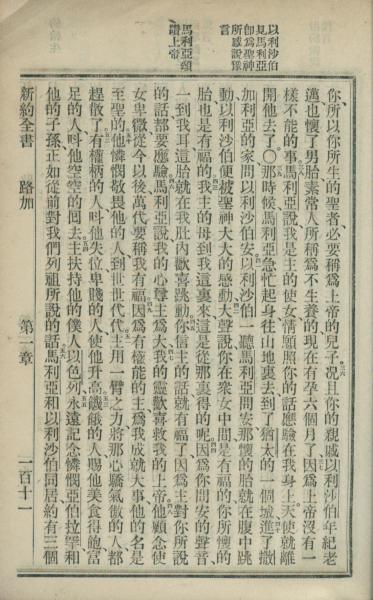 以利沙伯
見馬利亞
卽爲聖神
所感說豫
言
馬利亞頌
讚上帝
你、所以你所生的聖者、必要稱爲上帝的兒子、况且你的親戚以利沙伯、年紀老
邁、也懷了男胎、素常人所稱爲不生養的、現在有孕六個月了、因爲上帝沒有一
樣不能的事、馬利亞說、我是主的使女、情願照你的話應驗在我身上、天使就離
開他去了、○那時候馬利亞急忙起身、往山地裏去、到了猶太的一個城、進了撒
加利亞的家、問以利沙伯安、以利沙伯一聽馬利亞問安、那懷的胎就在腹中跳
動、以利沙伯便被聖神大大的感動、大聲說、你在衆女中間是有福的、你所懷的
胎也是有福的、我主的母到我這裏來、這是從那裏得的呢、因爲你問安的聲音、
一到我耳、這胎就在我肚內歡喜跳動、你信主的話就有福了、因爲主對你所說
的話都要應驗、馬利亞說、我的心尊主爲大、我的靈歡喜救我的上帝、他顧念使
女卑微、從今以後、萬代要稱我有福、因爲有權能的主、爲我成就大事、他的名是
至聖的、他憐憫敬畏他的人、到世世代代、主用一臂之力、將那心驕氣傲的人、都
趕散了、有權柄的人、呌他失位、卑賤的人、使他升高、饑餓的人、賜他美食得飽、富
足的人、呌他空空的囘去、主扶持他的僕人以色列、永遠記念憐憫亞伯拉罕和
他的子孫、正如從前對我們列祖所說的話、馬利亞和以利沙伯同居、約有三個
新約全書　路加　第一章　二百十一